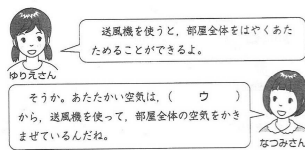 送風機を使うと，部屋全体をはやくあた
ためることができるよ。
ゆりえさん
そうか。あたたかい空気は，（　ウ　）
から，送風機を使って，部屋全体の空気をかき
まぜているんだね。
なつみさん